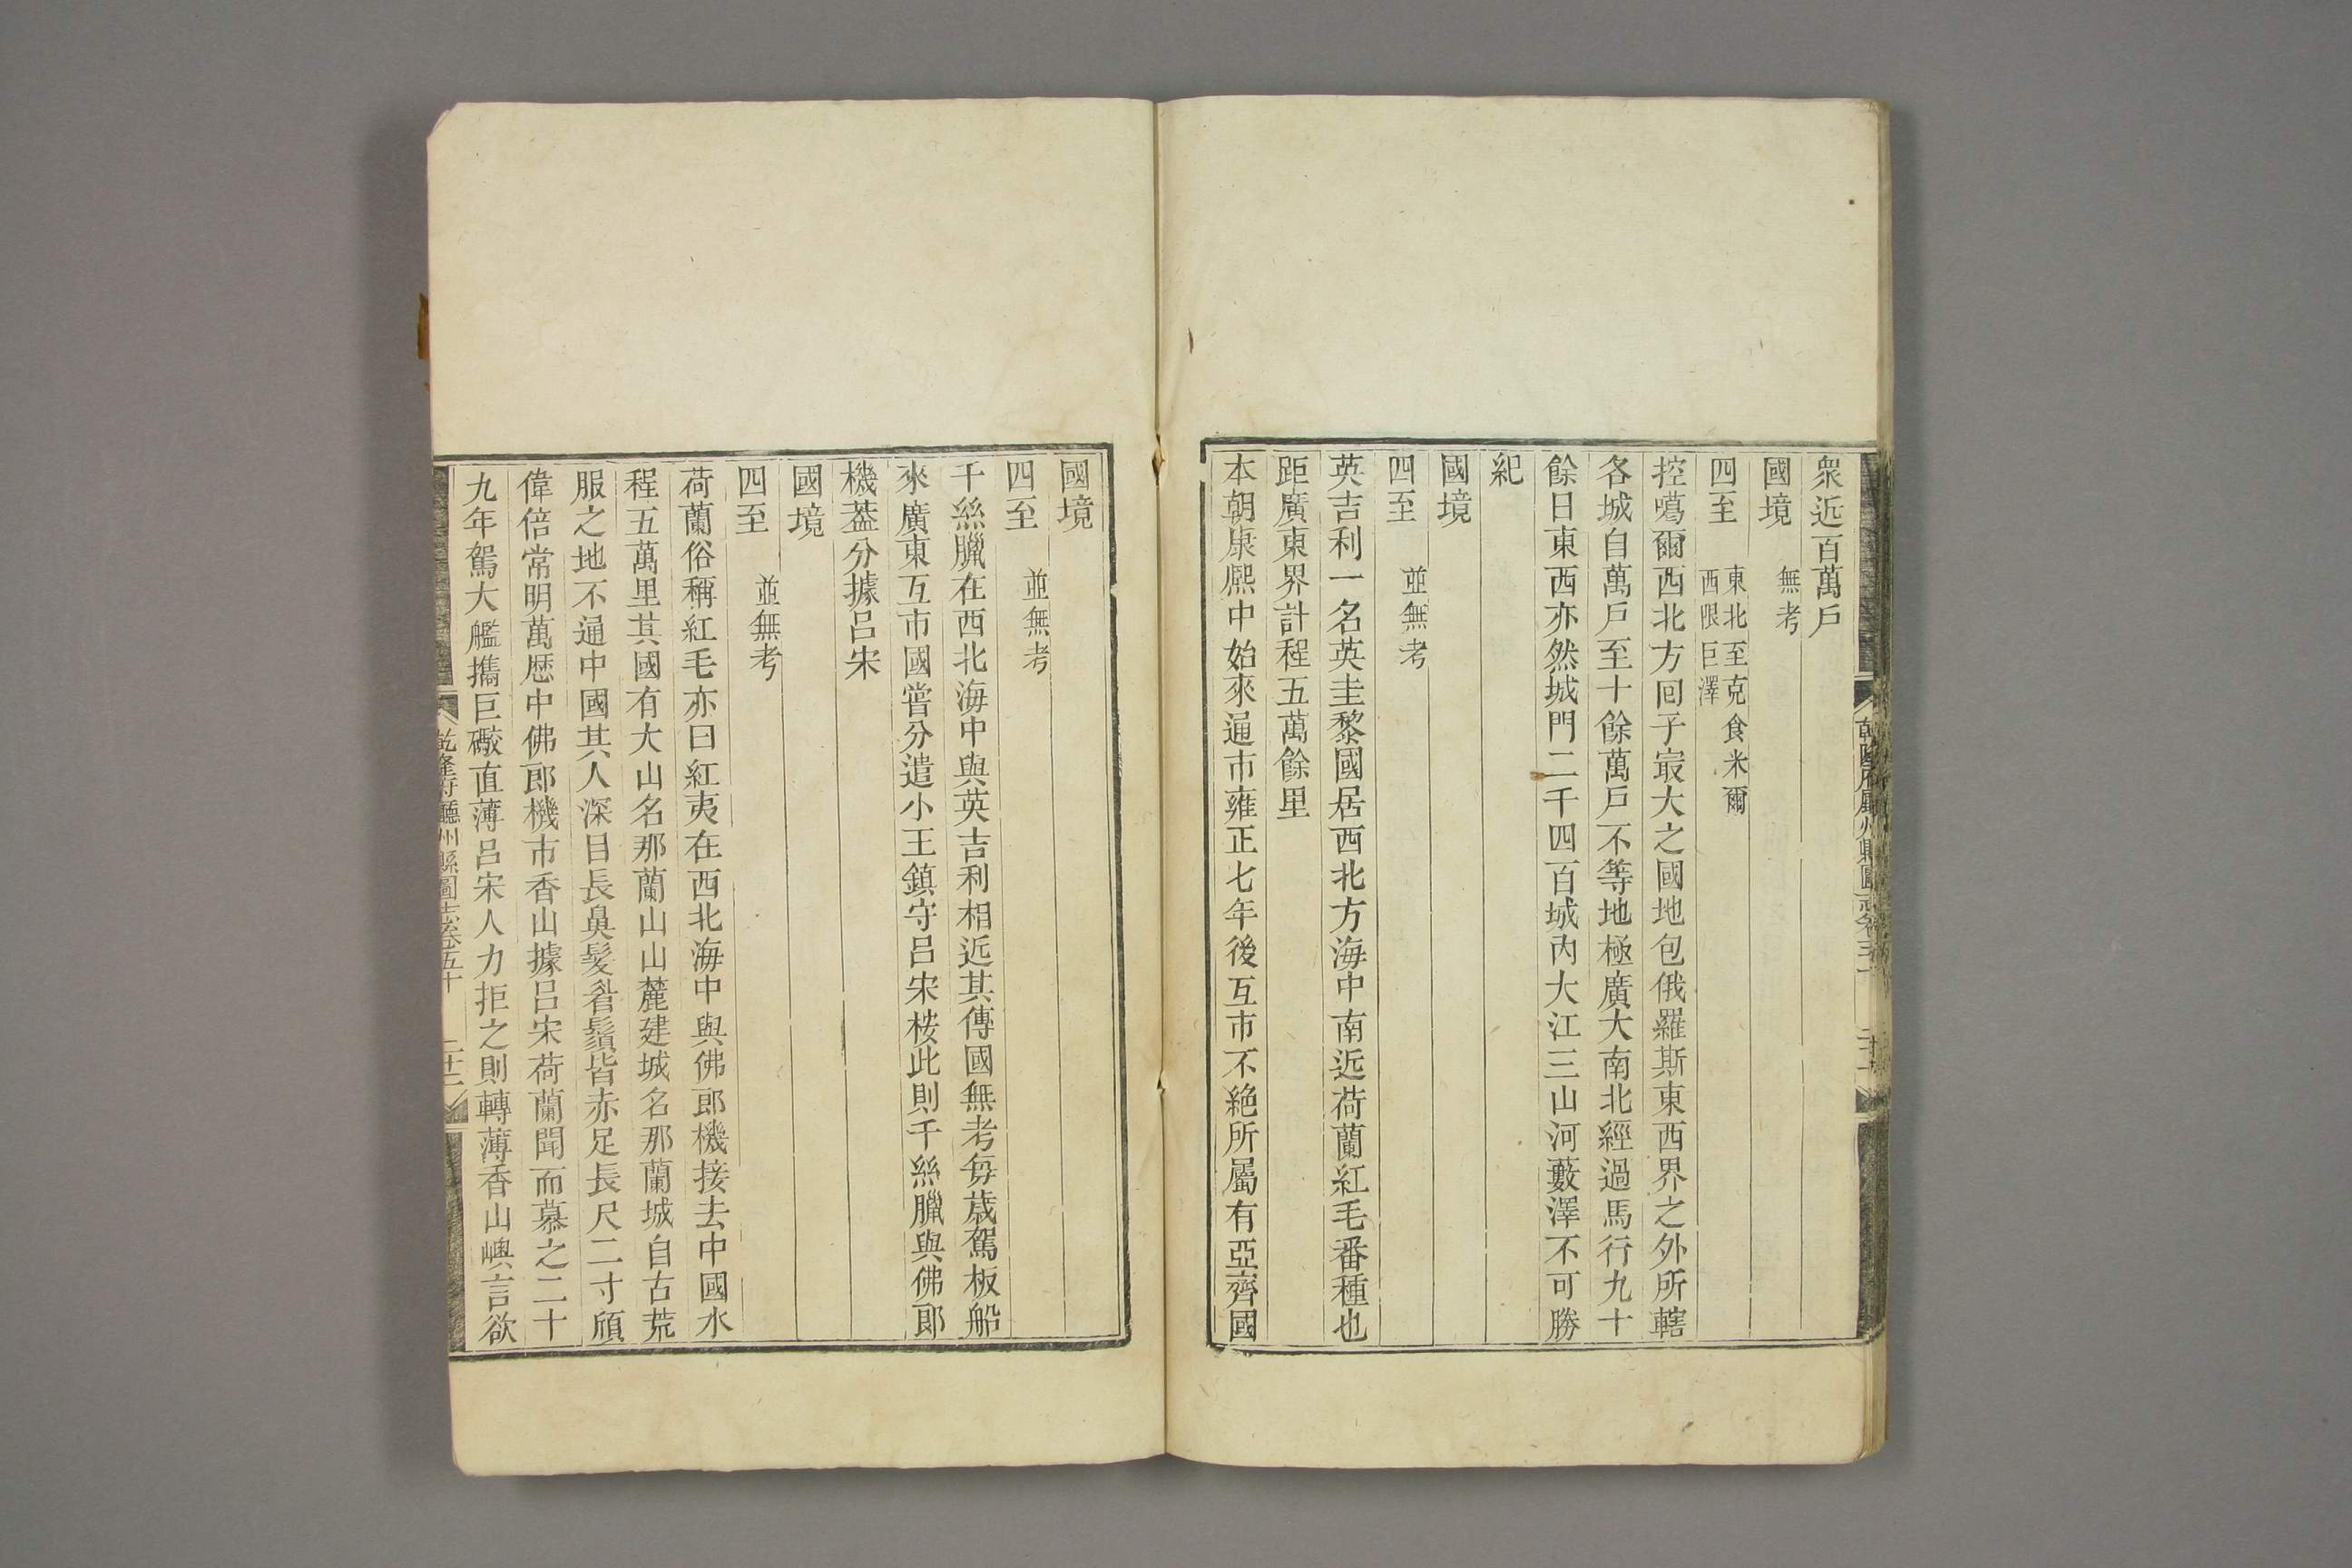 衆近百萬戶
國境 無考
四至 東北至克食米爾
西限巨澤
控噶爾西北方囘子㝡大之國地包俄羅斯東西界之外所轄
各城自萬戶至十餘萬戶不等地極廣大南北經過馬行九十
餘日東西亦然城門二千四百城內大江三山河藪澤不可勝
紀
國境
四至 並無考
英吉利一名英圭黎國居西北方海中南近荷蘭紅毛番種也
距廣東界計程五萬餘里
本朝康熙中始來通市雍正七年後互市不絕所屬有亞齊國
國境
四至 並無考
千絲臘在西北海中與英吉利相近其傳國無考每歲駕板船
來廣東互市國嘗分遣小王鎮守呂宋桉此則千絲臘與佛郎
機葢分據呂宋
國境
四至 並無考
荷蘭俗稱紅毛亦曰紅夷在西北海中與佛郎機接去中國水
程五萬里其國有大山名那蘭山山麓建城名那蘭城自古荒
服之地不通中國其人深目長鼻髮眉鬚皆赤足長尺二寸頎
偉倍常明萬歷中佛郎機市香山據呂宋荷蘭聞而慕之二十
九年駕大艦攜巨礮直薄呂宋人力拒之則轉薄香山嶼言欲
乾隆府廳州縣圖志卷五十 二十二